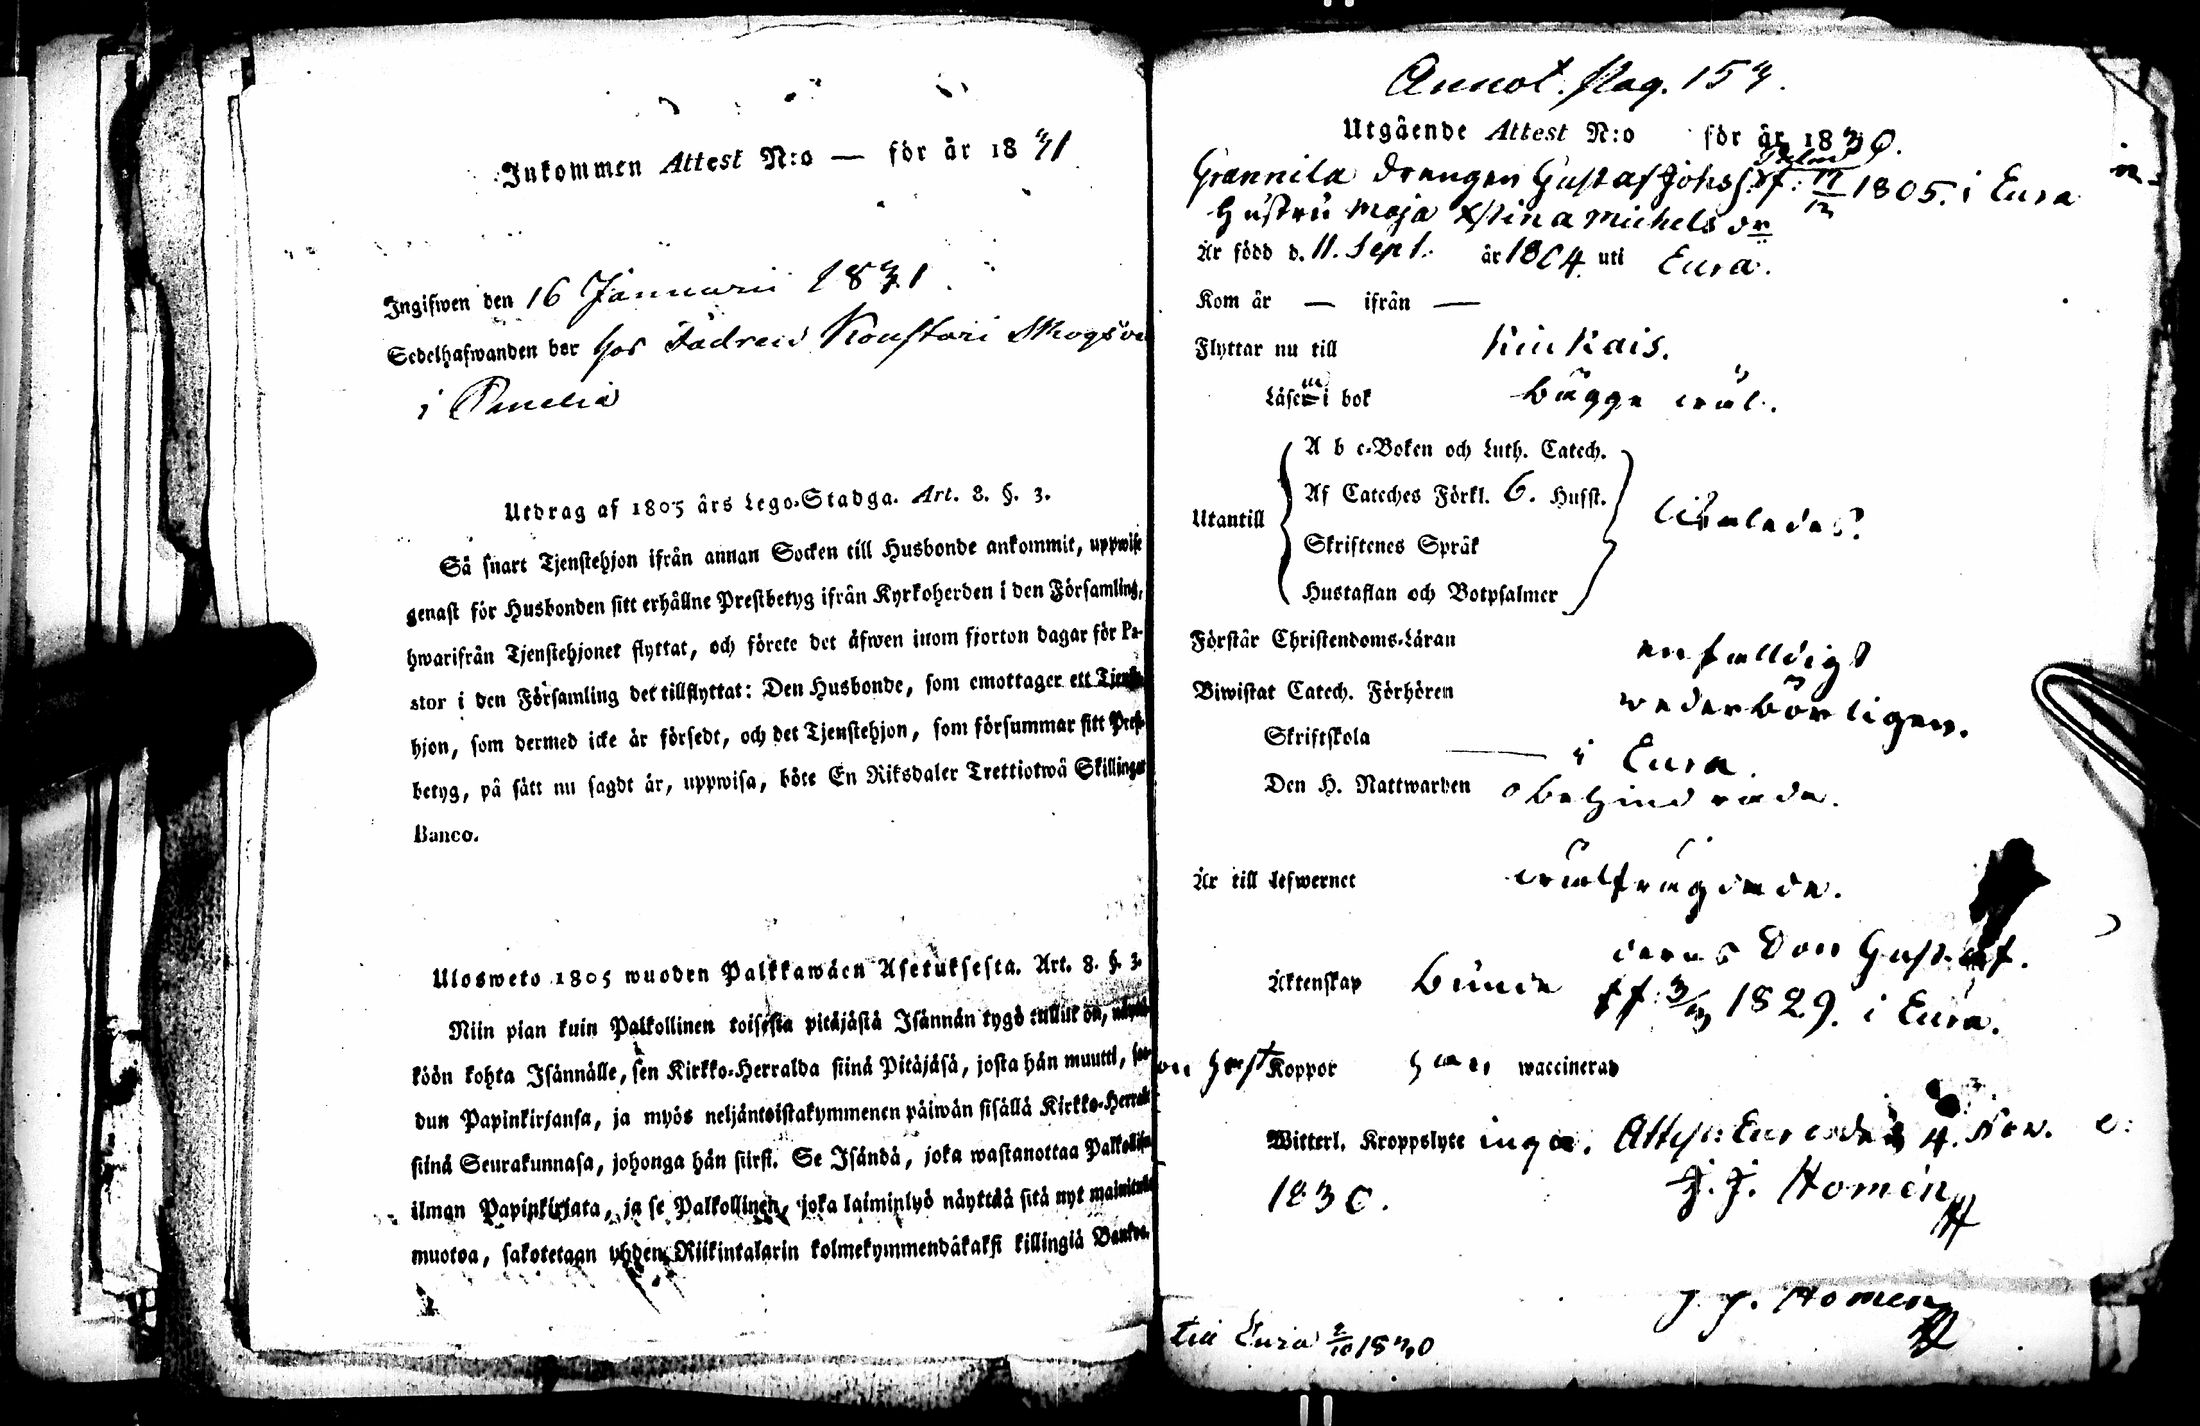 Inkommen Attest N:o — för år 1831
Ingifwen den 16 Januarii 1831.
Sedelhafwanden bor hos Konstari Skogson
i Panelia
Utdrag af 1805 års Lego-Stadga. Art. 8. §. 3.
Så snart Tjenstehjon ifrån annan Socken till Husbonde ankommit, uppwise
genast för Husbonden sitt erhållne Prestbetyg ifrån Kyrkoherden i den Församling,
hwarifrån Tjenstehjonet flyttat, och förete det äfwen inom fjorton dagar för Pa-
stor i den Församling det tillflyttat: Den Husbonde, som emottager ett Tjenste-
hjon, som dermed icke är försedt, och det Tjenstehjon, som försummar sitt Prest-
betyg, på sätt nu sagdt är, uppwisa, böte En Riksdaler Trettiotwå Skillingar
Banco.
Ulosweto 1805 wuoden Palkkawäen Asetuksesta. Art. 8. §. 3.
Niin pian kuin Palkollinen toisesta pitäjästä Isännän tygö tullut on, näyttä-
köön kohta Isännälle, sen Kirkko-Herralda siinä Pitäjäsä, josta hän muutti, saa-
dun Papinkirjansa, ja myös neljäntoistakymmenen päiwän sisällä Kirkko-Herralle
siinä Seurakunnasa, johonga hän siirsi. Se Isändä, joka wastanottaa Palkollisen
ilman Papinkirjata, ja se Palkollinen, joka laiminlyö näyttää sitä nyt mainitulla
muotoa, sakotetaan yhden Riikintalarin kolmekymmendäkaksi killingiä Bankoa.
Annot. Pag. 153.
Utgående Attest N:o för år 1830.
Grannila drengen Gustaf Johss. f. 17/12 1805. i Eura
Hustru Maja Xstina Michelsdr
Är född d. 11. Sept. år 1804 uti Eura.
Kom år — ifrån —
Flyttar nu till Kiukais.
Läser i bok bägge wäl.
Utantill
A b c-Boken och Luth. Catech.
Af Cateches Förkl. 6. Husst.
Skriftenes Språk
Hustaflan och Botpsalmer
likaledes.
Förstår Christendoms-Läran enfalldigt
Biwistat Catech. Förhören wederbörligen.
Skriftskola — i Eura
Den H. Nattwarden obehindrade.
Är till lefwernet wälfrägdade.
Äktenskap bundne deras Son Gustaf.
f. 3/3 1829. i Eura.
Koppor waccinerad
Witterl. Kroppslyte inga. Attest: Eura den 4. Nov.
1830.
J. J. Homén
J. J. Homén
till Eura 2/10 1830